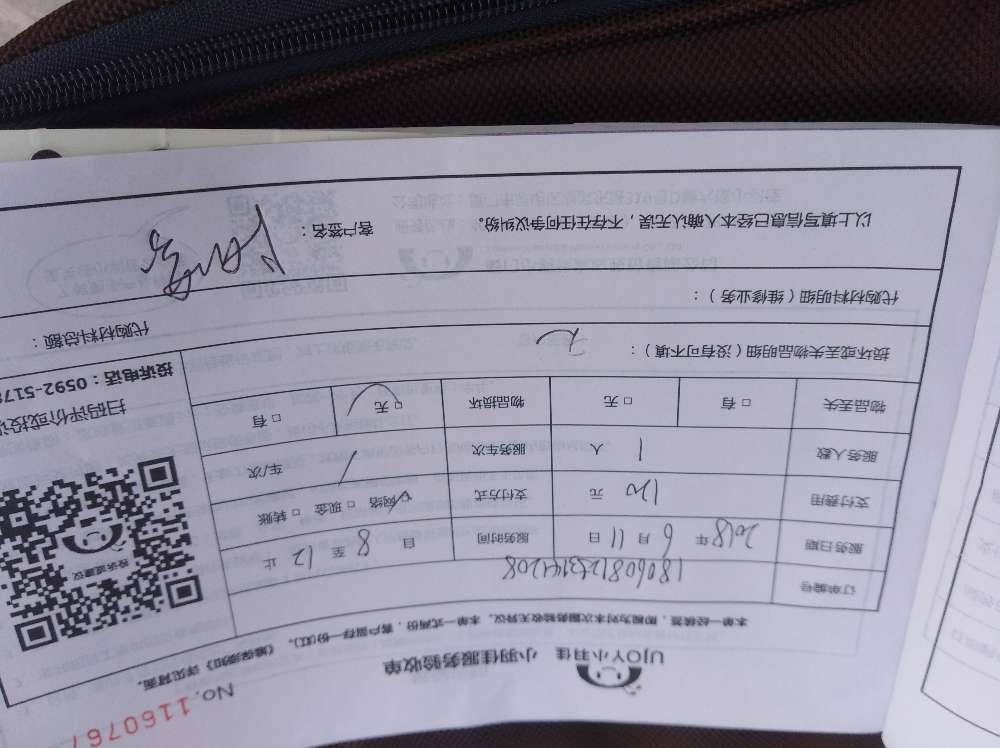 UJOY小羽佳 小羽佳服务验收单
No. 1160767
本单一经签署，即视为对本次服务验收无异议。本单一式两份，客户留存一份(页)。《维保须知》详见背面。
订单编号
服务日期 2018 年 6 月 11 日 服务时间 自 8 至 12 止
支付费用 120 元 支付方式 网络 □ 现金 □ 转账
服务人数 1 人 服务车次 / 车/次
物品丢失 □ 有 □ 无 物品损坏 □ 无 □ 有
损坏或丢失物品明细（没有可不填）： 无
代购材料明细（维修业务）： 代购材料总额：
以上填写信息已经本人确认无误，不存在任何争议纠纷。 客户签名：
投诉或建议
扫码评价或投
投诉电话：0592-5178